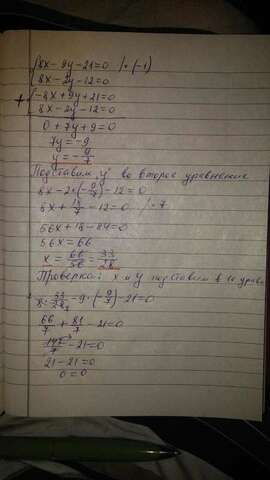 {8x-9y-21=0 /•(-1)
{8x-2y-12=0
+{-8x+9y+21=0
{8x-2y-12=0
0+7y+9=0
7y=-9
y=-9/7
Подставим y во второе уравнение
8x-2•(-9/7)-12=0
8x+18/7-12=0 /•7
56x+18-84=0
56x=66
x=66/56=33/28
Проверка: x и y подставим в 1е уравн
8•33/28-9•(-9/7)-21=0
66/7+81/7-21=0
147/7-21=0
21-21=0
0=0